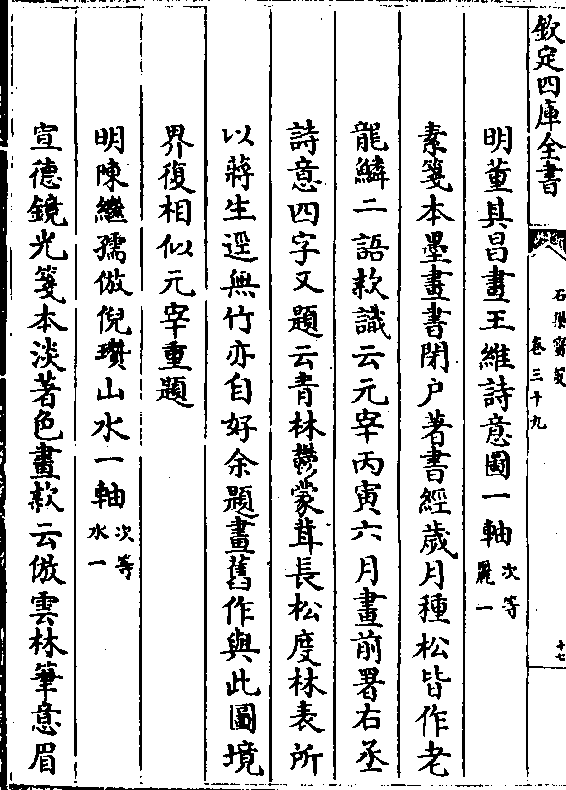 欽定四庫全書
石渠寶笈
卷三十九
十七
明董其昌畫王維詩意圖一軸 次等麗一
素箋本墨畫書閉户著書經歲月種松皆作老
龍鱗二語款識云元宰丙寅六月畫前署右丞
詩意四字又題云青林鬱蒙茸長松度林表所
以蔣生逕無竹亦自好余題畫舊作與此圖境
界復相似元宰重題
明陳繼孺倣倪瓚山水一軸 次等水一
宣德鏡光箋本淡著色畫款云倣雲林筆意眉